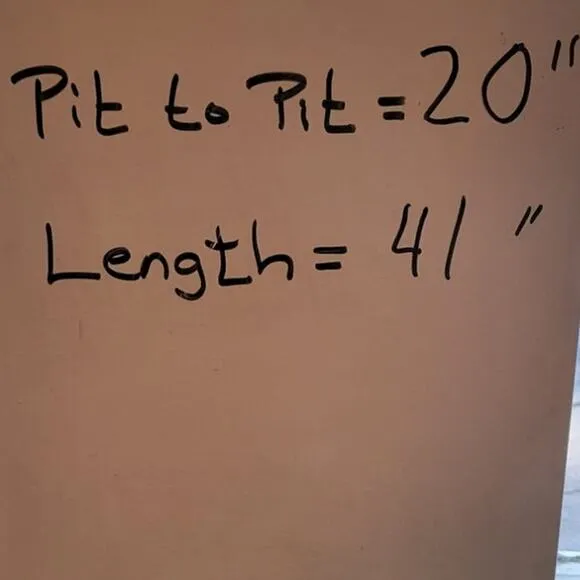 Pit to Pit = 20"
Length = 41"